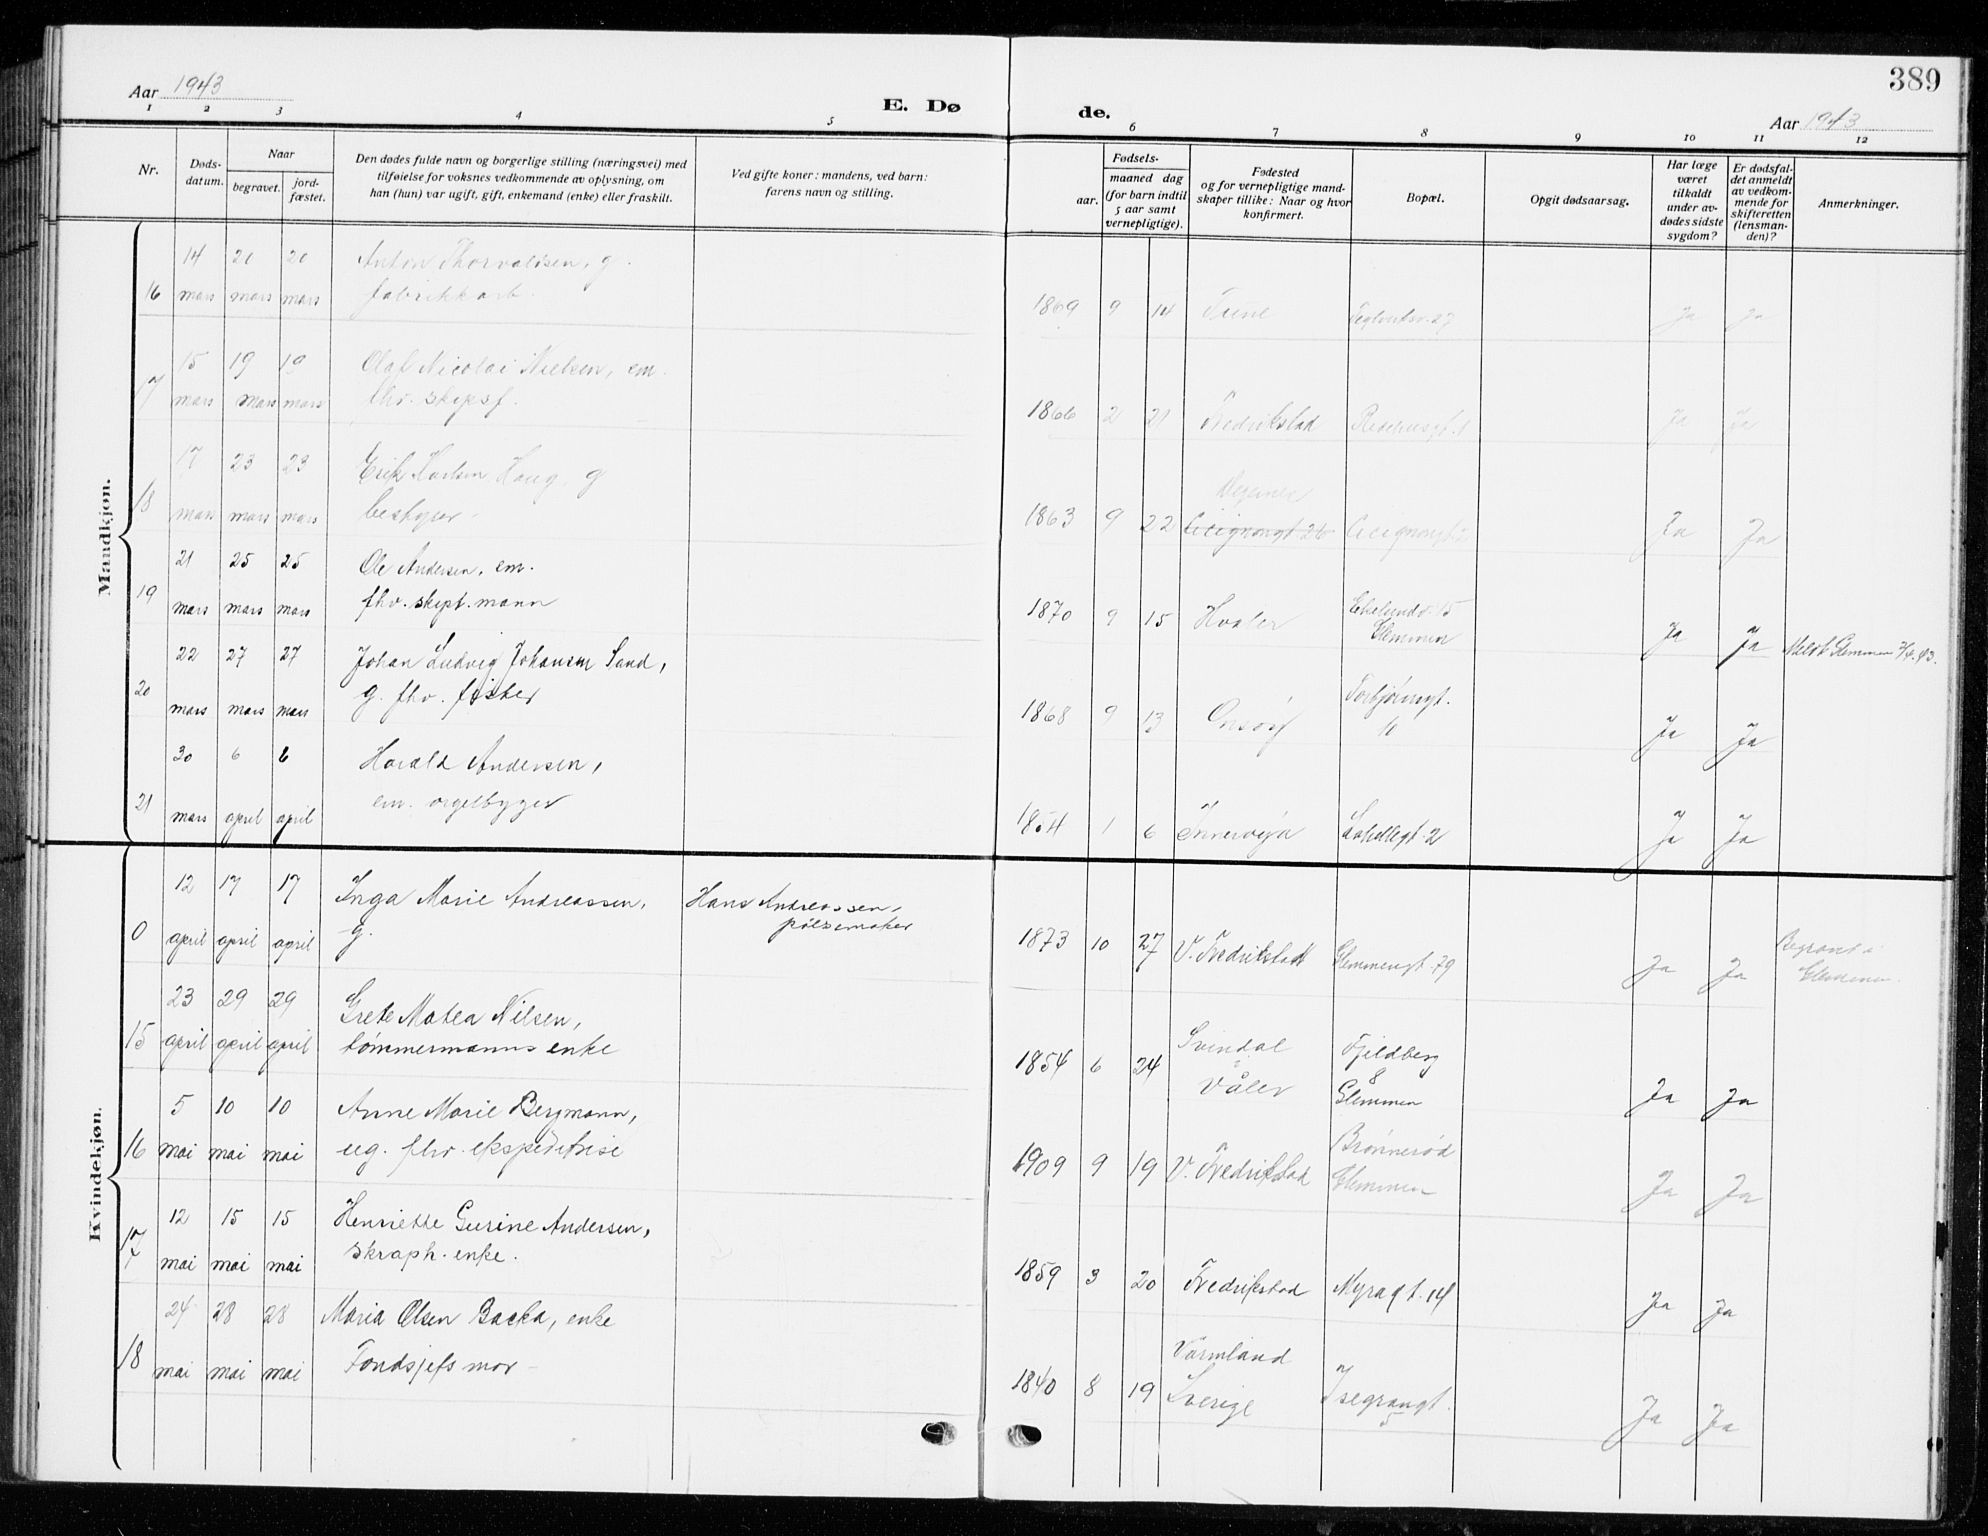 Aar 1943
E. Dø
de.
389
Aar 1943
1 2 3 4 5 6 7 8 9 10 11 12
Nr.
Døds-
datum.
Naar
begravet.
jord-
fæstet.
Den dødes fulde navn og borgerlige stilling (næringsvei) med
tilføielse for voksnes vedkommende av oplysning, om
han (hun) var ugift, gift, enkemand (enke) eller fraskilt.
Ved gifte koner: mandens, ved barn:
farens navn og stilling.
Fødsels-
aar.
maaned dag
(for barn indtil
5 aar samt
vernepligtige).
Fødested
og for vernepligtige mand-
skaper tillike: Naar og hvor
konfirmert.
Bopæl.
Opgit dødsaarsag.
Har læge
været
tilkaldt
under av-
dødes sidste
sygdom?
Er dødsfal-
det anmeldt
av vedkom-
mende for
skifteretten
(lensman-
den)?
Anmerkninger.
Mandkjøn.
14 20 20 Anton Thorvaldsen, g.
16 mars mars mars fabrikkarb.
1869 9 14 Tune Ja Ja
15 19 19 Olaf Nicolai Nielsen, em.
17 mars mars mars fhv. skipsf.
1866 2 21 Fredrikstad Ja Ja
17 23 23 Erik Karlsen Haug, g
18 mars mars mars bestyrer
1863 9 22 Cicignongt 26 Cicignongt Ja Ja
21 25 25 Ole Andersen, em.
19 mars mars mars fhv. skipt.mann
1870 9 15 Hvaler 15
Glemmen Ja Ja Meldt Glemmen
22 27 27 Johan Ludvig Johansen Sand,
20 mars mars mars g. fhv. fisker
1868 9 13 Onsøy Torbjørnsgt.
10 Ja Ja
30 6 6 Harald Andersen,
21 mars april april em. orgelbygger
1854 1 6 2 Ja Ja
Kvindekjøn.
12 17 17 Inga Marie Andreassen, Hans Andreassen,
0 april april april g. pølsemaker
1873 10 27 V. Fredrikstad Glemmengt. 79 Ja Ja Begravet i
Glemmen.
23 29 29 Grete Matea Nilsen,
15 april april april tømmermanns enke
1854 6 24 Svindal
i
Våler
Fjeldberg
8
Glemmen Ja Ja
5 10 10 Anne Marie Bergmann,
16 mai mai mai ug. fhv. ekspeditrise
1909 9 19 V. Fredrikstad Brønnerød
Glemmen Ja Ja
12 15 15 Henriette Gurine Andersen,
17 mai mai mai skraph. enke.
1859 3 20 Fredrikstad Myragt. 14 Ja Ja
24 28 28 Maria Olsen Backa, enke
18 mai mai mai Fondsjefs mor
1840 8 19 Värmland
Sverige
Isegrangt.
5 Ja Ja